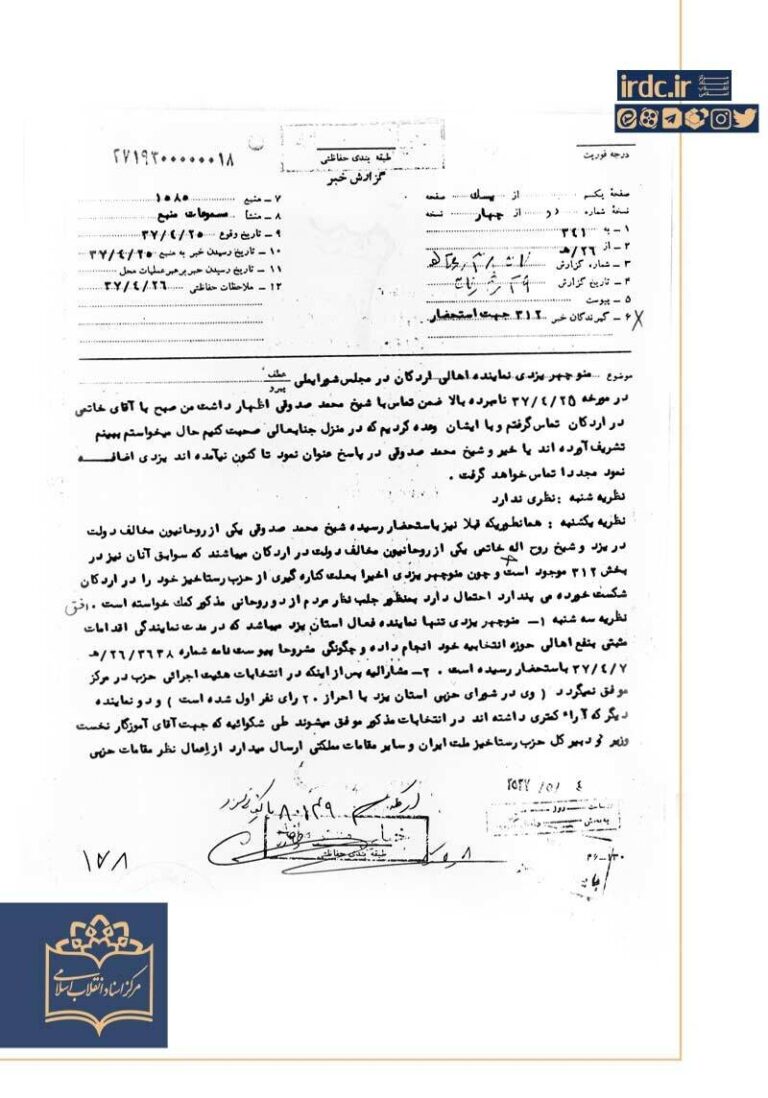 irdc.ir
۲۷۱۹۳۰۰۰۰۰۰۱۸
طبقه بندی حفاظتی
گزارش خبر
درجه فوریت
صفحهٔ یکم از یک صفحه
نسخهٔ شماره دو از چهار نسخه
۱ ـ به ۳۴۱
۲ ـ از ۲۶/هـ
۳ ـ شماره گزارش
۴ ـ تاریخ گزارش
۵ ـ پیوست
۶ ـ گیرندگان خبر ۳۱۲ جهت استحضار
۷ ـ منبع ۱۵۸۵
۸ ـ منشأ مسموعات منبع
۹ ـ تاریخ وقوع ۳۷/۴/۲۵
۱۰ ـ تاریخ رسیدن خبر به منبع ۳۷/۴/۲۵
۱۱ ـ تاریخ رسیدن خبر برهبر عملیات محل
۱۲ ـ ملاحظات حفاظتی ۳۷/۴/۲۶
موضوع منوچهر یزدی نماینده اهالی اردکان در مجلس شورایملی عطف پیرو
در مورخه ۳۷/۴/۲۵ نامبرده بالا ضمن تماس با شیخ محمد صدوقی اظهار داشت من صبح با آقای خاتمی
در اردکان تماس گرفتم و با ایشان وعده کردیم که در منزل جنابعالی صحبت کنیم حال میخواستم ببینم
تشریف آورده اند یا خیر و شیخ محمد صدوقی در پاسخ عنوان نمود تا کنون نیآمده اند یزدی اضافه
نمود مجددا تماس خواهد گرفت .
نظریه شنبه : نظری ندارد
نظریه یکشنبه : همانطوریکه قبلا نیز باستحضار رسیده شیخ محمد صدوقی یکی از روحانیون مخالف دولت
در یزد و شیخ روح اله خاتمی یکی از روحانیون مخالف دولت در اردکان میباشند که سوابق آنان نیز در
بخش ۳۱۲ موجود است و چون منوچهر یزدی اخیرا بعلت کناره گیری از حزب رستاخیز خود را در اردکان
شکست خورده می پندارد احتمال دارد بمنظور جلب نظر مردم از دو روحانی مذکور کمک خواسته است . افق
نظریه سه شنبه ۱ـ منوچهر یزدی تنها نماینده فعال استان یزد میباشد که در مدت نمایندگی اقدامات
مثبتی بنفع اهالی حوزه انتخابیه خود انجام داده و چگونگی مشروحا پیوست نامه شماره ۲۶/۳۶۳۸/هـ
۳۷/۴/۷ باستحضار رسیده است . ۲ـ مشارالیه پس از اینکه در انتخابات هیئت اجرائی حزب در مرکز
موفق نمیگردد ( وی در شورای حزبی استان یزد با احراز ۲۰ رای نفر اول شده است ) و دو نماینده
دیگر که آراء کمتری داشته اند در انتخابات مذکور موفق میشوند طی شکوائیه که جهت آقای آموزگار نخست
وزیر و دبیر کل حزب رستاخیز ملت ایران و سایر مقامات مملکتی ارسال میدارد از اعمال نظر مقامات حزبی
۲۵۳۷/۵/۴
طبقه بندی حفاظتی
۱۷۸
مرکز اسناد انقلاب اسلامی